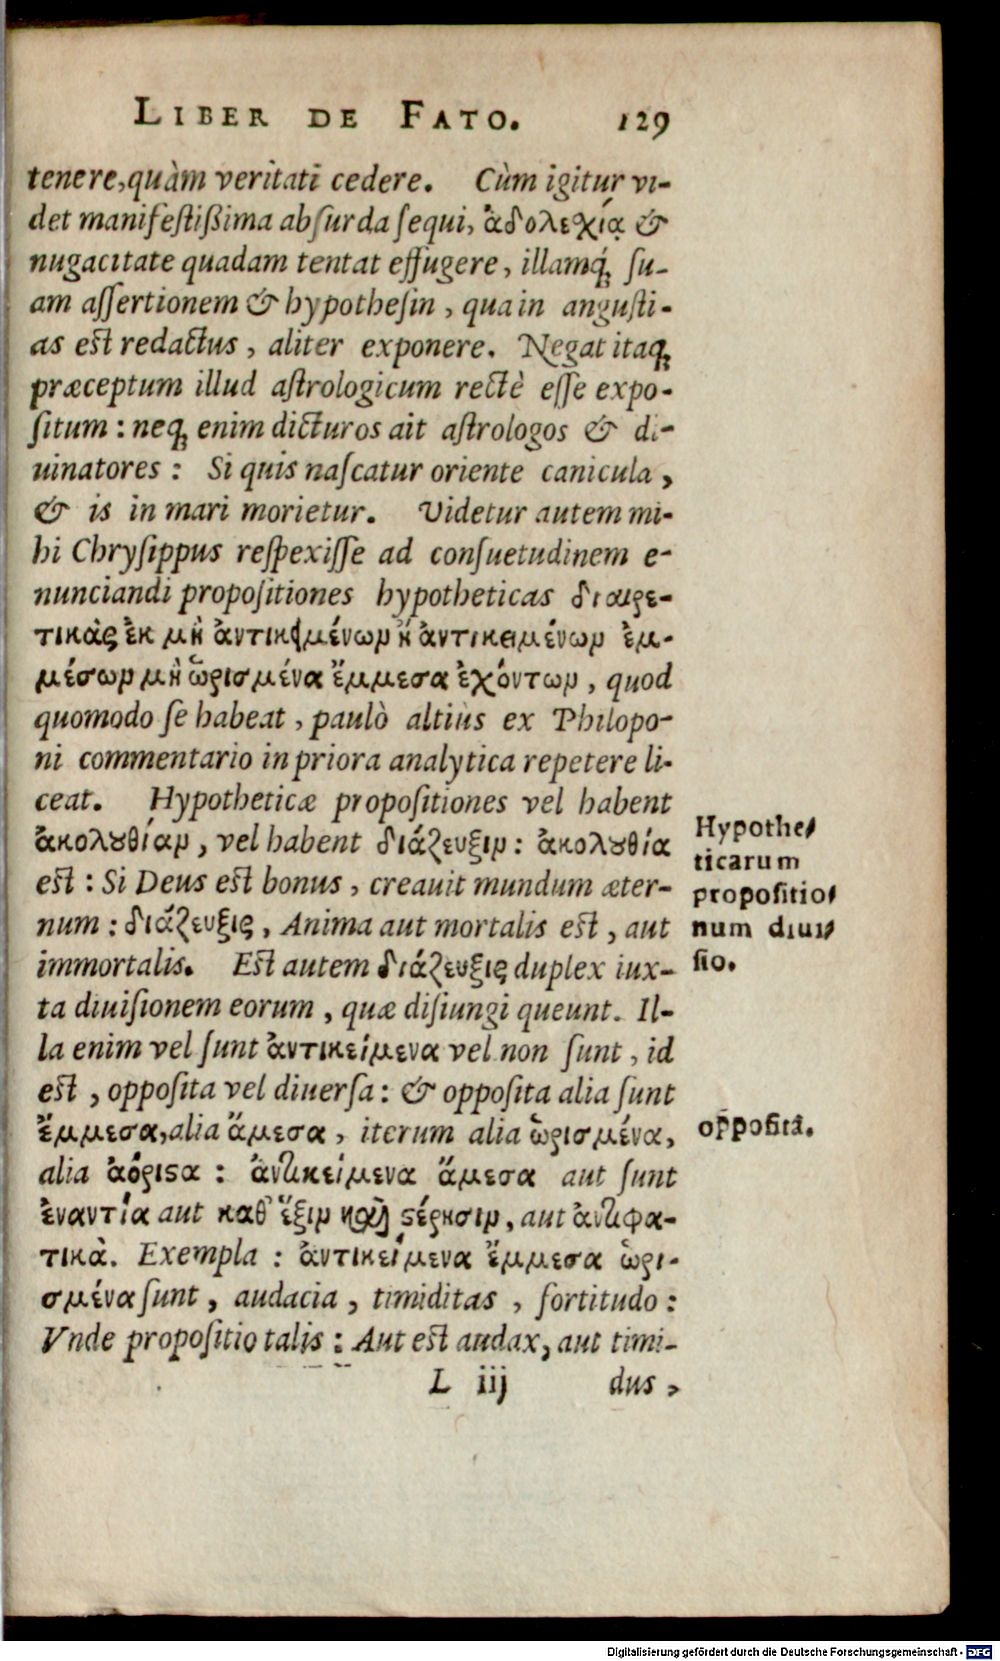 LIBER DE FATO. 129
tenere, quàm veritati cedere. Cùm igitur vi-
det manifestißima absurda sequi, ἀδολεχίᾳ &
nugacitate quadam tentat effugere, illamq́; su-
am assertionem & hypothesin, qua in angusti-
as est redactus, aliter exponere. Negat itaq;
præceptum illud astrologicum rectè esse expo-
situm: neq; enim dicturos ait astrologos & di-
uinatores: Si quis nascatur oriente canicula,
& is in mari morietur. Videtur autem mi-
hi Chrysippus respexisse ad consuetudinem e-
nunciandi propositiones hypotheticas διαιρε-
τικὰς ἐκ μὴ ἀντικειμένων ἢ ἀντικειμένων ἐμ-
μέσων μὴ ὡρισμένα ἔμμεσα ἐχόντων, quod
quomodo se habeat, paulò altius ex Philopo-
ni commentario in priora analytica repetere li-
ceat. Hypotheticæ propositiones vel habent
ἀκολουθίαν, vel habent διάζευξιν: ἀκολουθία
est: Si Deus est bonus, creauit mundum æter-
num: διάζευξις, Anima aut mortalis est, aut
immortalis. Est autem διάζευξις duplex iux-
ta diuisionem eorum, quæ disiungi queunt. Il-
la enim vel sunt ἀντικείμενα vel non sunt, id
est, opposita vel diuersa: & opposita alia sunt
ἔμμεσα, alia ἄμεσα, iterum alia ὡρισμένα,
alia ἀόριστα: ἀντικείμενα ἄμεσα aut sunt
ἐναντία aut καθ' ἕξιν καὶ στέρησιν, aut ἀντιφα-
τικὰ. Exempla: ἀντικείμενα ἔμμεσα ὡρι-
σμένα sunt, audacia, timiditas, fortitudo:
Vnde propositio talis: Aut est audax, aut timi-
L iij dus,
Hypothe-
ticarum
propositio-
num diui-
sio.
opposita.
Digitalisierung gefördert durch die Deutsche Forschungsgemeinschaft - DFG